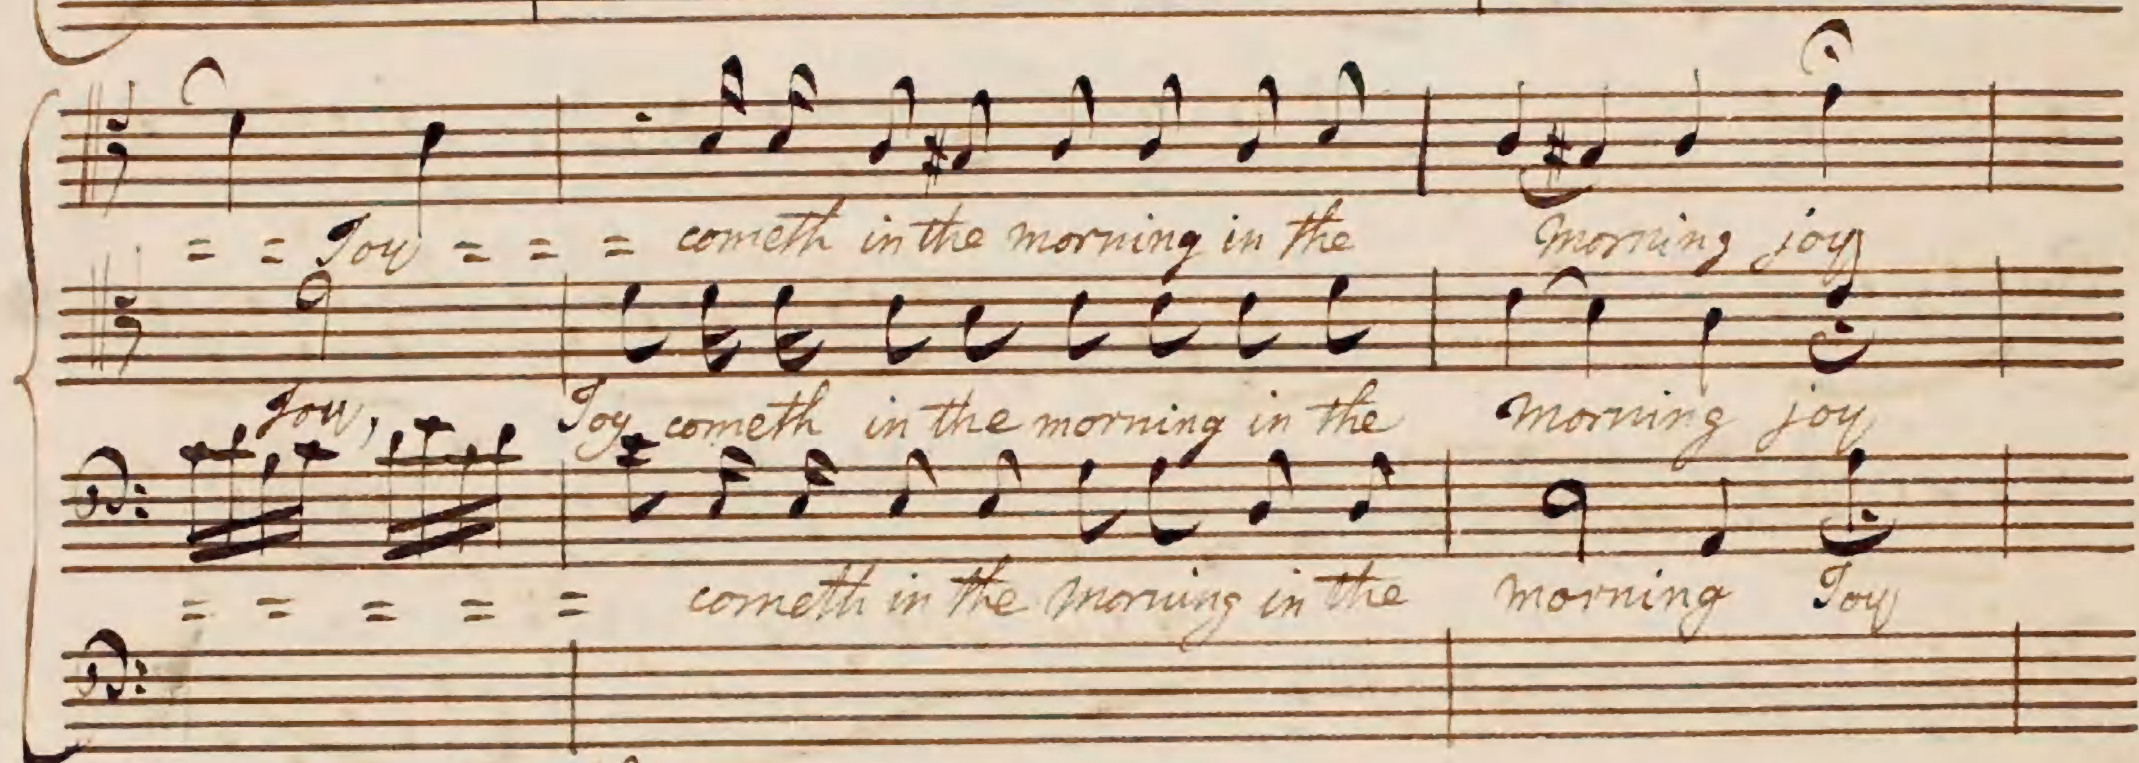 = = Joy = = = cometh in the morning in the morning joy
Joy, Joy cometh in the morning in the morning joy
= = = = = cometh in the morning in the morning Joy